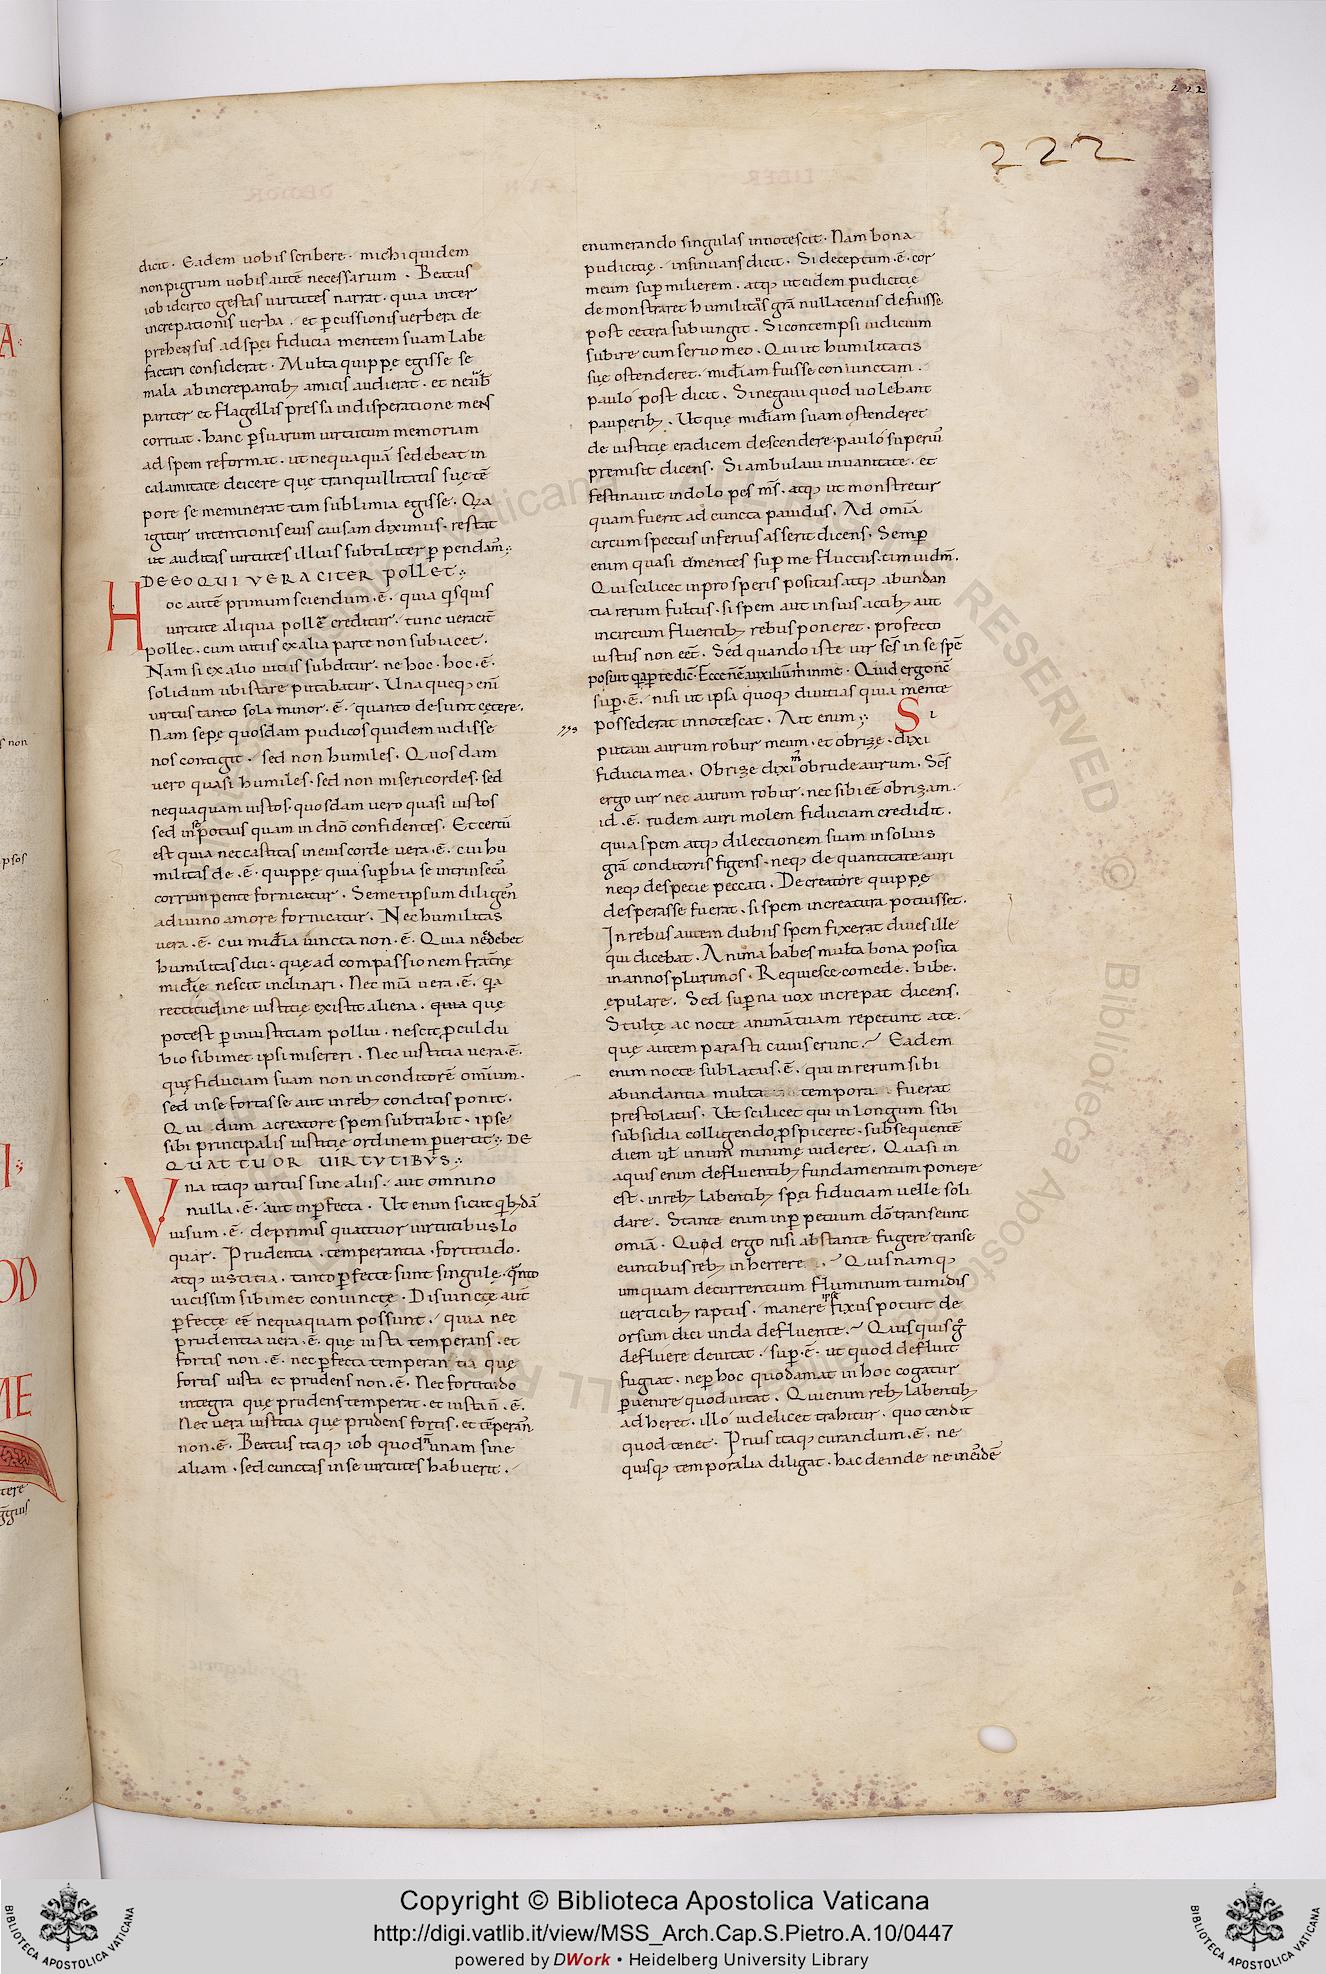 222
222
dicit. Eadem uobis scribere. michi quidem
non pigrum uobis autē necessarium. Beatus
iob idcirco gestas uirtutes narrat. quia inter
increpationis uerba. et pcussionis uerbera de
prehensus ad spei fiducia mentem suam labe
factari considerat. Multa quippe egisse se
mala ab increpantib; amicis audierat. et ne
pariter et flagellis pressa in disperatione mens
corruat. hanc psuarum uirtutum memoriam
ad spem reformat. ut nequaquā se debeat in
calamitate deicere quę tranquillitatis suę tē
pore se meminerat tam sublimia egisse. Qia
igitur intentionis eius causam diximus. restat
ut auditas uirtutes illius subtiliter ppendam̄.
DE EO QUI VERACITER pollet.
Hoc autē primum sciendum.ē. quia qisquis
uirtute aliqua pollē creditur. tunc ueracit̄
pollet. cum uitiis ex alia parte non subiacet.
Nam si ex alio uitiis subditur. ne hoc. hoc.ē.
solidum ubi stare putabatur. Una queq; enī
uirtus tanto sola minor.ē. quanto desunt cętere.
Nam sepę quosdam pudicos quidem uidisse
nos contigit. sed non humiles. Quosdam
uero quasi humiles. sed non misericordes. sed
nequaquam iustos. quosdam uero quasi iustos
sed in se potius quam in dnō confidentes. Et certū
est quia nec castitas in eius corde uera.ē. cui hu
militas de.ē. quippę quia supbia se intrinsecū
corrumpente fornicatur. Semetipsum diligen̄
a diuino amore fornicatur. Nec humilitas
uera.ē. cui mīdia iuncta non.ē. Quia nec debet
humilitas dici. quę ad compassionem fratnę
midię nescit inclinari. Nec mīa uera.ē. qa
rectitudine iustitię existit aliena. quia quę
potest piniustitiam pollui. nescit pcul du
bio sibimet ipsi misereri. Nec iustitia uera.ē.
quę fiduciam suam non in conditorē omīum.
sed in se fortasse aut in reb; conditis ponit.
Qui dum a creatore spem subtrahit. ipse
sibi principalis iustitię ordinem puertit. DE
QUATTUOR UIRTVTIBVS.
Vna itaq; uirtus sine aliis. aut omnino
nulla.ē. aut inpfecta. Ut enim sicut qb;dā
uisum.ē. de primis quattuor uirtutibus lo
quar. Prudentia. temperantia. fortitudo.
atq; iustitia. tanto pfecte sunt singulę. qnto
uicissim sibimet coniunctę. Disiunctę aut̄
pfectę eē nequaquam possunt. quia nec
prudentia uera.ē. quę iusta temperans. et
fortis non.ē. nec pfecta temperantia quę
fortis iusta et prudens non.ē. Nec fortitudo
integra quę prudens temperat. et iusta n̄.ē.
Nec uera iustitia quę prudens fortis. et tēperan̄
non.ē. Beatus itaq; iob quod n̄ unam sine
aliam. sed cunctas in se uirtutes habuerit.
enumerando singulas innotescit. Nam bona
pudicitię. insinuans dicit. Si deceptum.ē. cor
meum sup mulierem. atq; ut eidem pudicitię
demonstraret humilitas grā nullatenus defuisse
post cetera subiungit. Si contempsi iudicium
subire cum seruo meo. Qui ut humilitatis
suę ostenderet. midīam fuisse coniunctam.
paulo post dicit. Si negaui quod uolebant
pauperib;. Ut quę midīam suam ostenderet
de iustitię eradicem descendere. paulo superiū
premisit dicens. Si ambulaui in uanitate. et
festinauit in dolo pes m̄s. atq; ut monstretur
quam fuerit ad cuncta pauidus. Ad omīa
circumspectus inferius asserit dicens. Semp
enim quasi tumentes sup me fluctus timui dn̄m.
Qui scilicet in prosperis positus atq; abundan
tia rerum fultus. si spem aut in suis actib; aut
in circumfluentib; rebus poneret. profecto
iustus non eēt. Sed quando iste uir scs̄ in se spē
posuit
sup.ē. nisi ut ipsa quoq; diuitias quia mente
possederat innotescat. Ait enim. Si
putaui aurum robur meum. et obrizę. dixi
fiducia mea. Obrize dixim obrude aurum. Scs̄
ergo uir nec aurum robur. nec sibi eē obrizam.
id.ē. rudem auri molem fiduciam credidit.
quia spem atq; dilectionem suam in solius
grā conditoris figens. neq; de quantitate auri
neq; de specie peccati. De creatore quippę
desperasse fuerat. si spem in creatura potuisset.
In rebus autem dubiis spem fixerat diues ille
qui dicebat. Anima habes multa bona posita
in annos plurimos. Requiesce comede. bibe.
ępulare. Sed supna uox increpat dicens.
Stultę ac nocte animā tuam repetunt a te.
quę autem parasti cuius erunt. Eadem
enim nocte sublatus.ē. qui in rerum sibi
abundantia multa tempora fuerat
prestolatus. Ut scilicet qui in longum sibi
subsidia colligendo pspiceret. subsequentē
diem ul unum minimę uideret. Quasi in
aquis enim defluentib; fundamentum ponere
est. in reb; labentib; spei fiduciam uelle soli
dare. Stante enim in ppetuum dō transeunt
omīa. Quod ergo nisi ab stante fugere transe
euntibus reb; inherrere. Quis namq;
umquam decurrentium fluminum tumidis
uerticib; raptus. manere ipse fixus potuit de
orsum dici unda defluente. Quisquis g
defluere deuitat. sup.ē. ut quod defluit
fugiat. ne p hoc quod amat in hoc cogatur
puenire quod uitat. Qui enim reb; labentib;
adheret. illo uidelicet trahitur. quo tendit
quod tenet. Prius itaq; curandum.ē. ne
quisq; temporalia diligat. hac deinde ne
Copyright © Biblioteca Apostolica Vaticana
http://digi.vatlib.it/view/MSS_Arch.Cap.S.Pietro.A.10/0447
powered by DWork • Heidelberg University Library